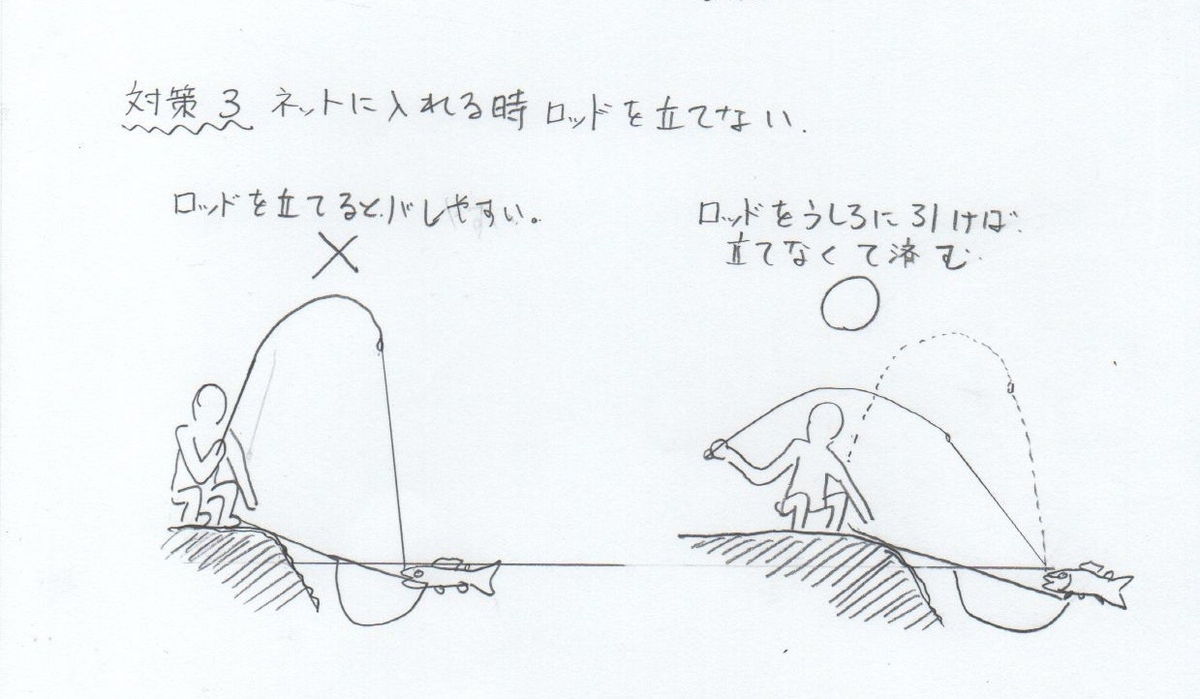 対策3 ネットに入れる時ロッドを立てない.
ロッドを立てるとバレやすい。
ロッドをうしろに引けば
立てなくて済む